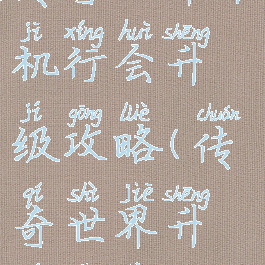 jī xíng huì shēng
机行会升
jí gōng lüè chuán
级攻略(传
qí shì jiè shēng
奇世界升